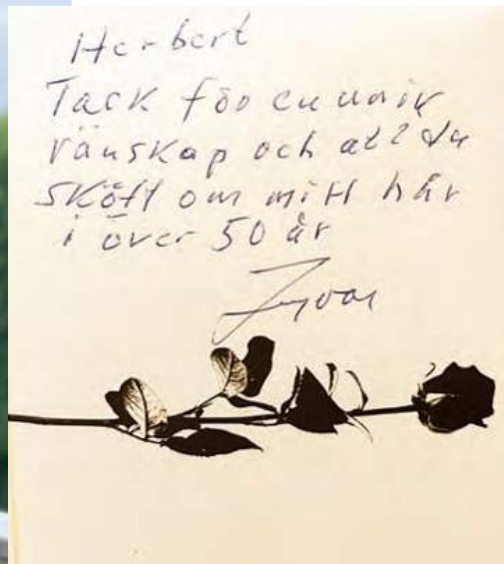 Herbert
Tack för en unik
vänskap och att du
skött om mitt hår
i över 50 år